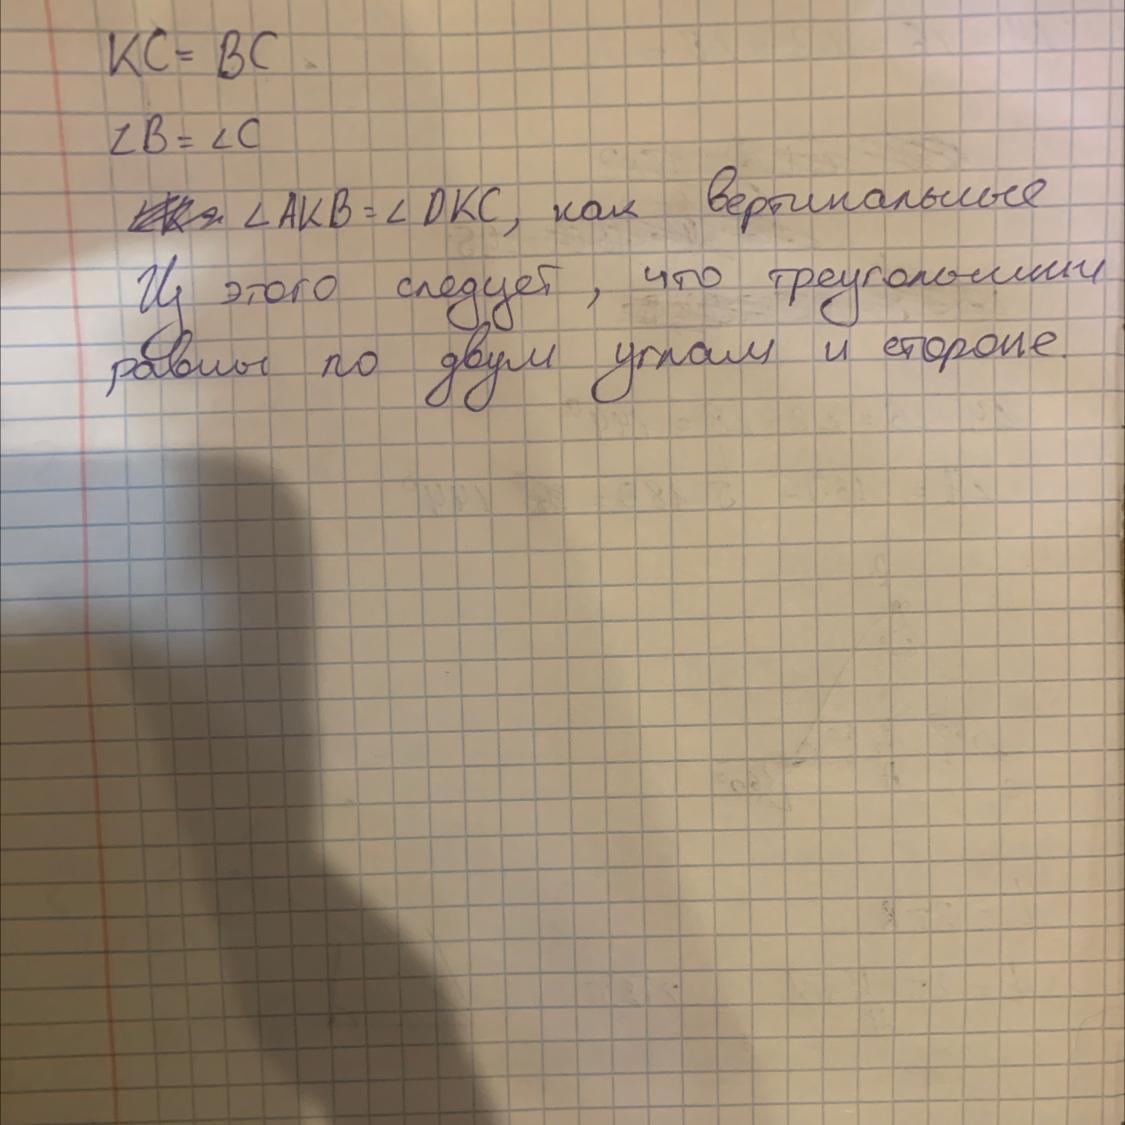 KC = BC
∠B = ∠C
∠AKB = ∠DKC, как вертикальные
Из этого следует, что треугольники
равны по двум углам и стороне.